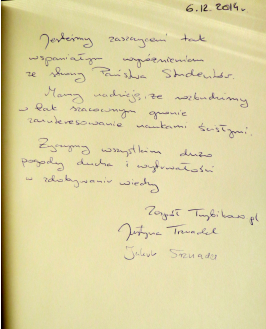 6.12.2014r.
Jesteśmy zaszczyceni tak
wspaniałym wyróżnieniem
ze strony Państwa Studentów.
Mamy nadzieję, że rozbudziliśmy
w tak szacownym gronie
zainteresowanie naukami ścisłymi.
Życzymy wszystkim dużo
pogody ducha i wytrwałości
w zdobywaniu wiedzy
Zespół
Justyna
Jakub